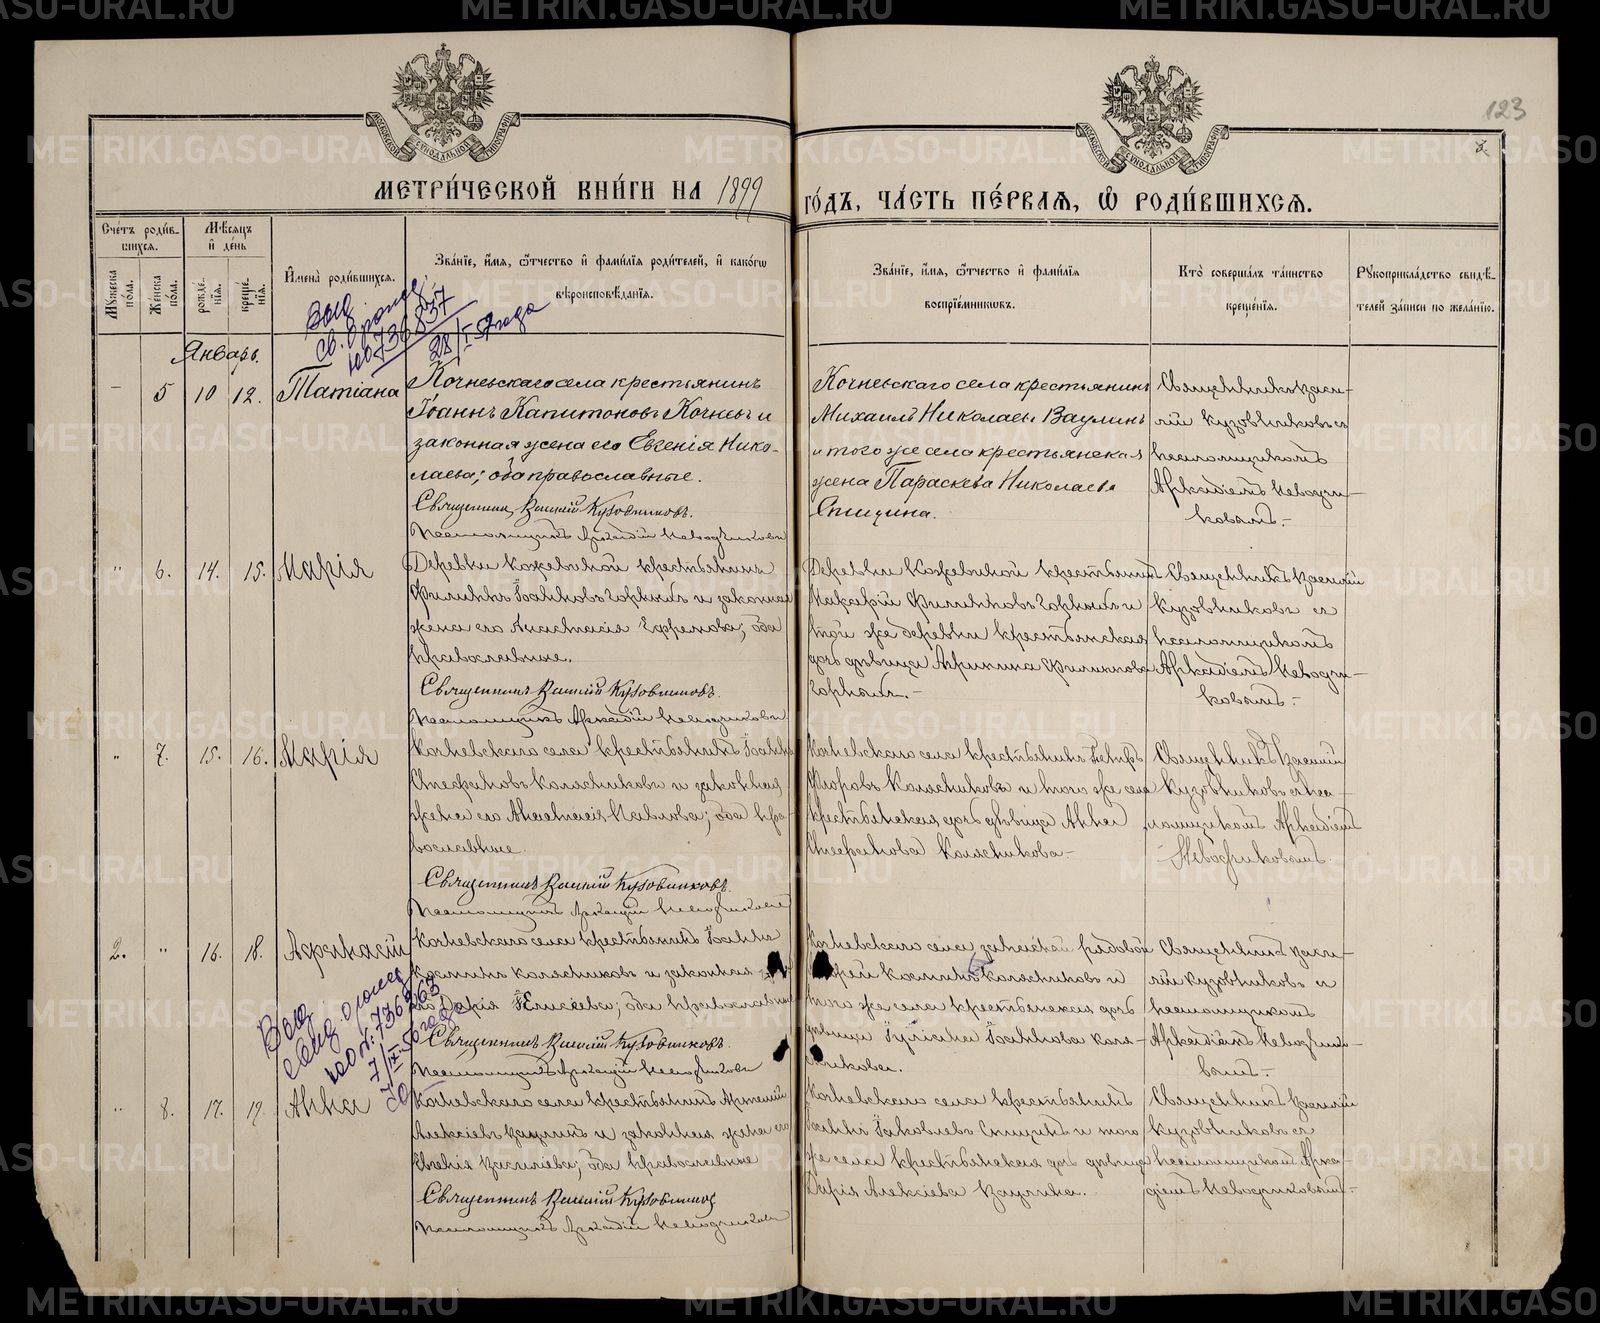 123
2.
МЕТРИ́ЧЕСКОЙ КНИ́ГИ НА 1899 ГО́ДЪ, ЧА́СТЬ ПЕ́РВАѦ, Ѡ РОДИ́ВШИХСѦ.
Сче́тъ роди́вшихся.
Мꙋ́жеска по́ла.
Же́нска по́ла.
Мѣ́сяцъ и де́нь
рожде́нїѧ.
креще́нїѧ.
Имена̀ роди́вшихся.
Зва́нїе, и́мѧ, ѻ́тчество и фами́лїѧ роди́телей, и како́гѡ вѣроисповѣ́данїѧ.
Зва́нїе, и́мѧ, ѻ́тчество и фами́лїѧ воспрїе́мникѡвъ.
Кто̀ соверша́лъ та́инство креще́нїѧ.
Рꙋкоприкла́дство свидѣ́телей за́писи по жела́нїю.
Январь.
736837
28/I-57 года
5 10 12. Татіана
Кочневскаго села крестьянинъ
Іоаннъ Капитоновъ Кочневъ и
законная жена его Евгенія Нико-
лаева; оба православные.
Священникъ Василій Кузовниковъ.
Псаломщикъ Аркадій Неводчиковъ
Кочневскаго села крестьянинъ
Михаилъ Николаевъ Ваулинъ
и того же села крестьянская
жена Параскева Николаева
Спицина.
Священникъ Васи-
лій Кузовниковъ съ
псаломщикомъ
Аркадіемъ Неводчи-
ковымъ.
" 6. 14. 15. Марія
Деревни Кожевиной крестьянинъ
Филиппъ Іоанновъ Горныхъ и законная
жена его Анастасія Ефремова; оба
православные.
Священникъ Василій Кузовниковъ.
Псаломщикъ Аркадій Неводчиковъ
Деревни Кожевиной крестьянинъ
Макарій Филипповъ Горныхъ и
той же деревни крестьянская
дочь девица Агрипина Филиппова
Горныхъ.
Священникъ Василій
Кузовниковъ съ
псаломщикомъ
Аркадіемъ Неводчи-
ковымъ.
" 7. 15. 16. Марія
Кочневскаго села крестьянинъ Іоаннъ
Стефановъ Колясниковъ и законная
жена его Анастасія Павлова; оба пра-
вославные.
Священникъ Василій Кузовниковъ.
Псаломщикъ Аркадій Неводчиковъ
Кочневскаго села крестьянинъ Петръ
Флоровъ Колясниковъ и того же села
крестьянская дочь девица Анна
Стефанова Колясникова.
Священникъ Василій
Кузовниковъ съ пса-
ломщикомъ Аркадіемъ
Неводчиковымъ.
2. " 16. 18. Афанасій
Кочневскаго села крестьянинъ Іоаннъ
Козминъ Колясниковъ и законная
Дарія Елисеева; оба православные
Священникъ Василій Кузовниковъ.
Псаломщикъ Аркадій Неводчиковъ
Кочневскаго села запасной рядовой
Козминъ Колясниковъ и
того же села крестьянская дочь
девица Іоаннова Коля-
сникова.
Священникъ Васи-
лій Кузовниковъ и
псаломщикъ
Аркадій Неводчи-
7/IX-56 года
" 8. 17. 19. Анна
Кочневскаго села крестьянинъ Артемій
Алексіевъ Ваулинъ и законная жена его
Евгенія Василіева; оба православные
Священникъ Василій Кузовниковъ
Псаломщикъ Аркадій Неводчиковъ
Кочневскаго села крестьянинъ
Іоаннъ Іаковлевъ Спицинъ и того
же села крестьянская дочь девица
Дарія Алексіева Ваулина.
Священникъ Василій
Кузовниковъ съ
псаломщикомъ Арка-
діемъ Неводчиковымъ.
METRIKI.GASO-URAL.RU